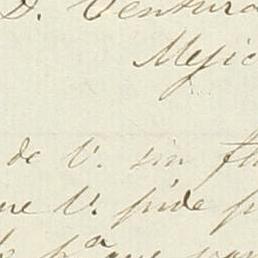 D. Ventura
Mejic
de V. sin
ue V. pide p
pª que